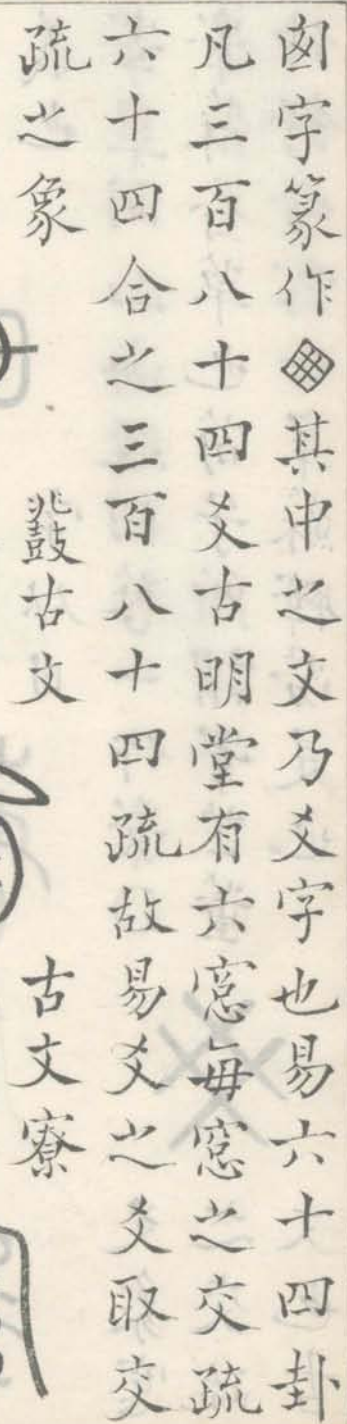 囱字篆作其中之文乃爻字也易六十四卦
凡三百八十四爻古明堂有六窓每窓之交疏
六十四合之三百八十四疏故易爻之爻取交
疏之象
鼗古文
古文寮